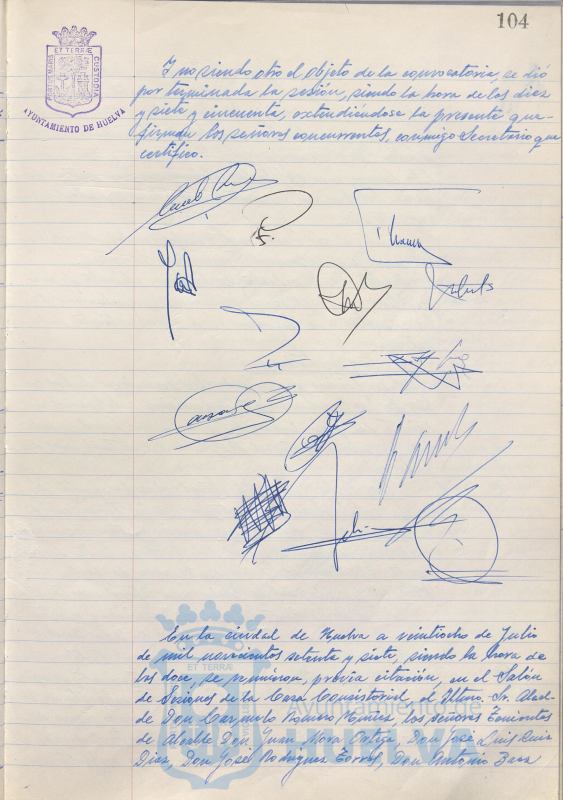 104
PORTUS MARIS ET TERRÆ CUSTODIA
AYUNTAMIENTO DE HUELVA
Y no siendo otro el objeto de la convocatoria, se dió
por terminada la sesión, siendo la hora de las diez
y siete y cincuenta, extendiéndose la presente que
firman los señores concurrentes, conmigo Secretario que
certifico.
En la ciudad de Huelva a veintiocho de Julio
de mil novecientos setenta y siete, siendo la hora de
las doce, se reunieron, previa citación, en el Salón
de Sesiones de la Casa Consistorial, el Iltmo. Sr. Alcal-
de Don Carmelo Romero los señores Tenientes
de Alcalde Don Juan Mora Ortiz, Don José Luis Ruiz
Díaz, Don José Rodríguez Torres, Don Antonio Baez
ET TERRÆ
Ayuntamiento de
HUELVA